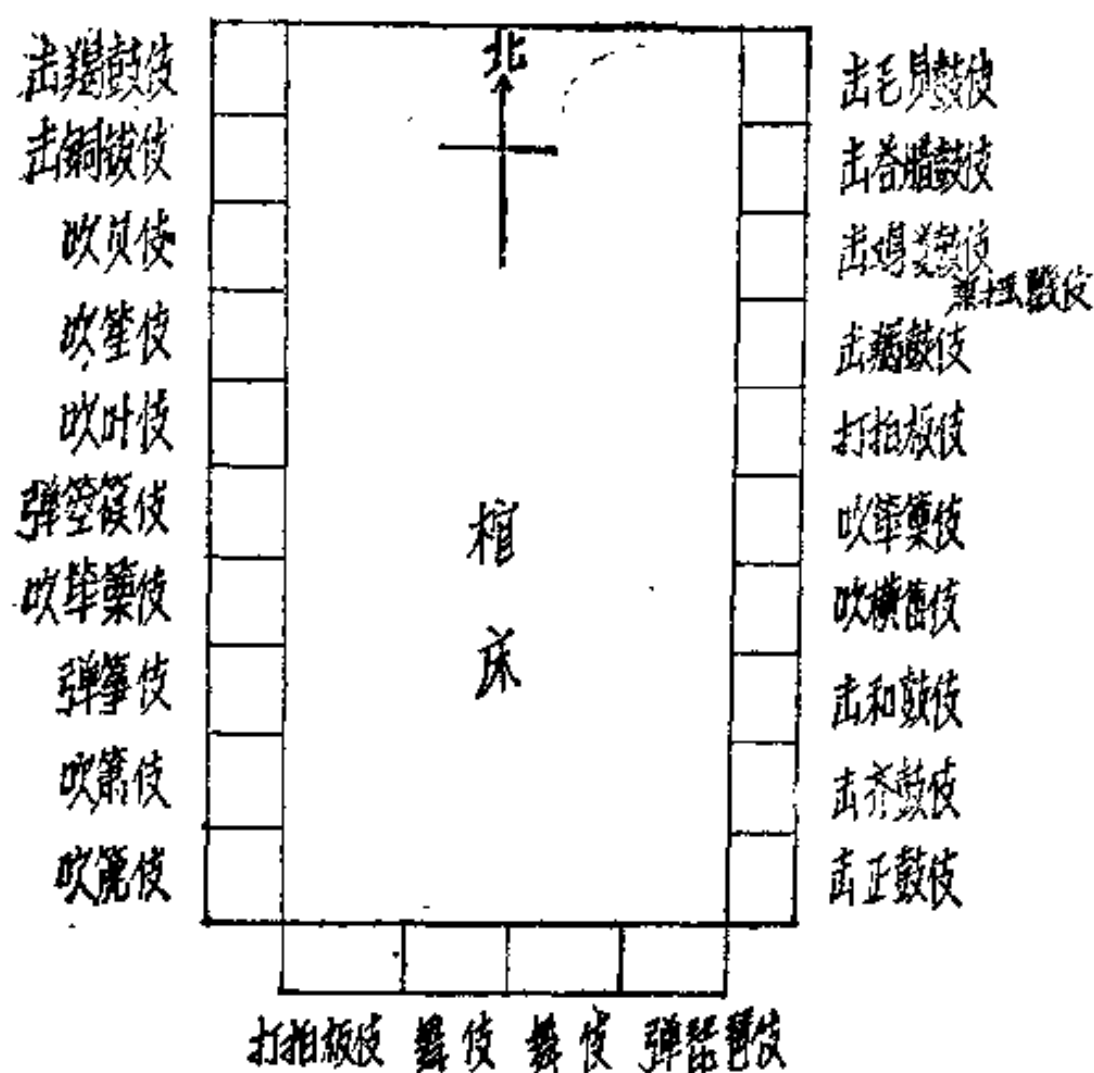 北
棺
床
击羯鼓伎
击铜钹伎
吹贝伎
吹笙伎
吹叶伎
弹箜篌伎
吹筚篥伎
弹筝伎
吹箫伎
吹篪伎
击毛员鼓伎
击答腊鼓伎
击鸡娄鼓伎
击羯鼓伎
打拍板伎
吹筚篥伎
吹横笛伎
击和鼓伎
击齐鼓伎
击正鼓伎
打拍板伎 舞伎 舞伎 弹琵琶伎